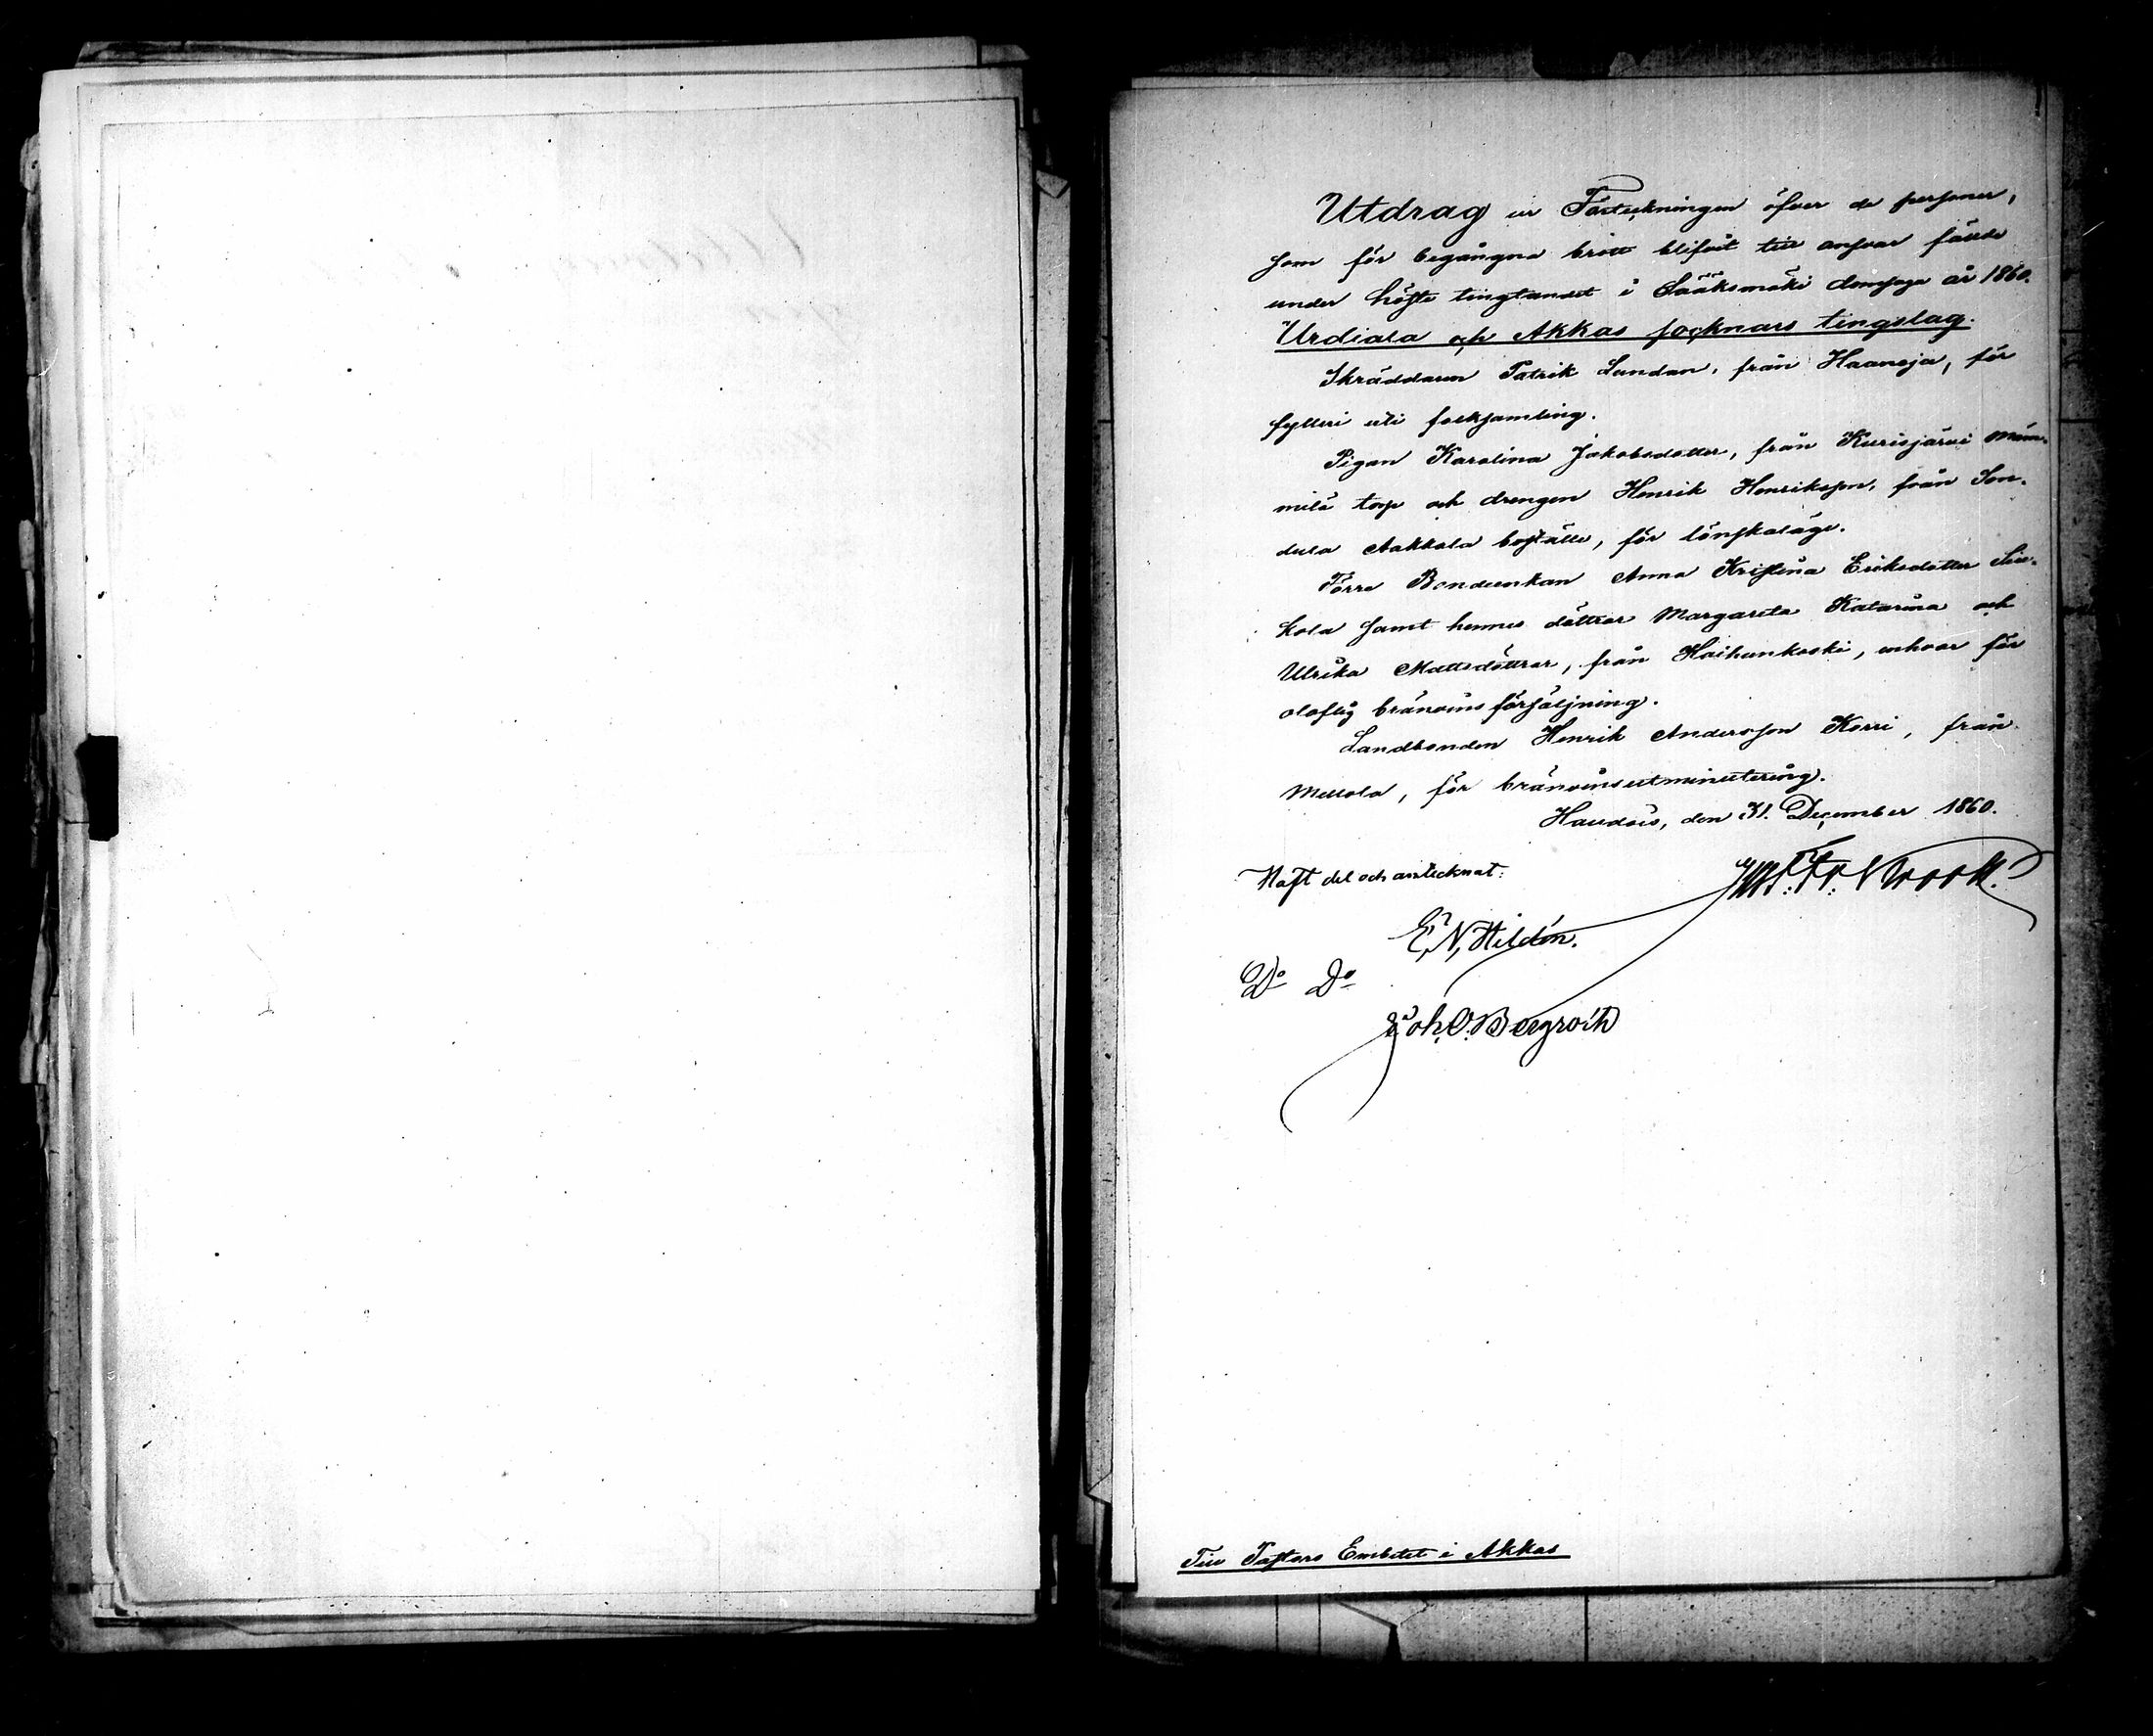 Utdrag ur Förteckningen öfver de personer,
som för begångna brott blifvit till ansvar fälde
under höste tingtandet i Sääksmäki domsaga år 1860.
Urdiala och Akkas socknars tingslag.
Skräddaren Patrik Lundan, från Haaneja, för
fylleri uti folksamling.
Pigan Karolina Jakobsdotter, från Kurisjärvi Mäm-
milä torp och drengen Henrik Henriksson, från Son-
dula Aakkala boställe, för lönskaläge.
Förre Bondeenkan Anna Kristina Eriksdotter
kola samt hennes döttrar Margareta Katarina och
Ulrika Mattsdöttrar, från Haihunkoski, enhvar för
oloflig bränvins försäljning.
Landbonden Henrik Andersson Korri, från
Mellola, för bränvinsutminutering.
Haudois, den 31. December 1860.
Haft del och antecknat:
E. N. Hildén.
Do Do
Joh. O. Bergroth
Till Pastors Embetet i Akkas